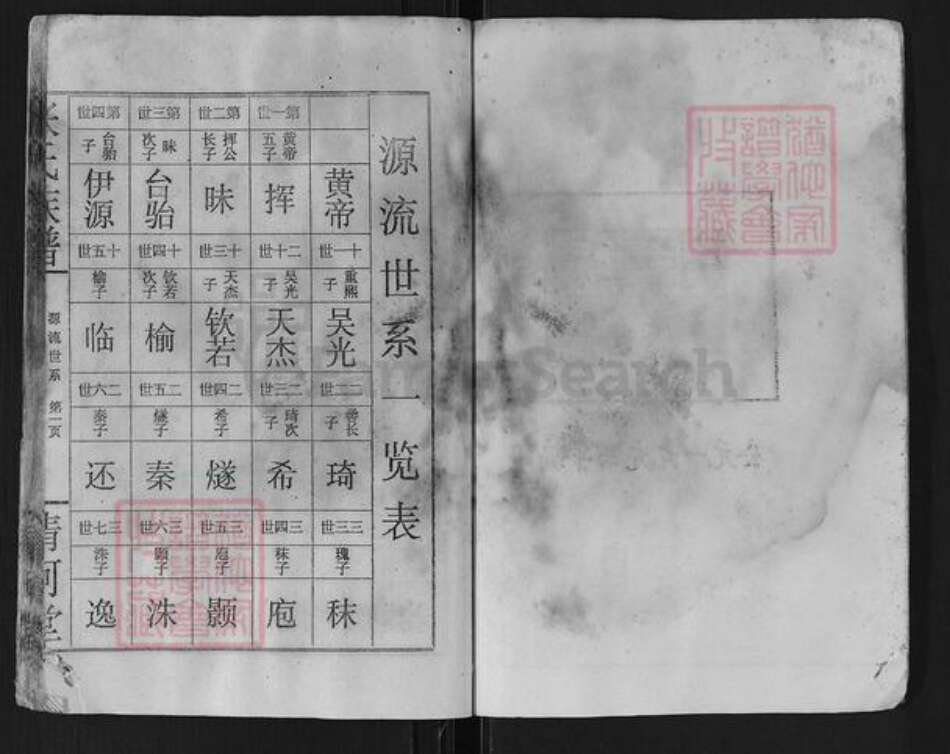 源流世系一览表
第一世 第二世 第三世 第四世
黄帝五子 挥公长子 昧次子 台骀子
黄帝 挥 昧 台骀 伊源
十一世 十二世 十三世 十四世 十五世
重熙子 吴光子 天杰子 钦若次子 榆子
吴光 天杰 钦若 榆 临
二二世 二三世 二四世 二五世 二六世
善长子 琦次子 希子 燧子 秦子
琦 希 燧 秦 还
三三世 三四世 三五世 三六世 三七世
瑰子 秣子 庖子 颢子 洙子
秣 庖 颢 洙 逸
氏族谱
源流世系 第一页
清河堂
犹他家谱学会收藏
犹他家谱学会收藏
FamilySearch